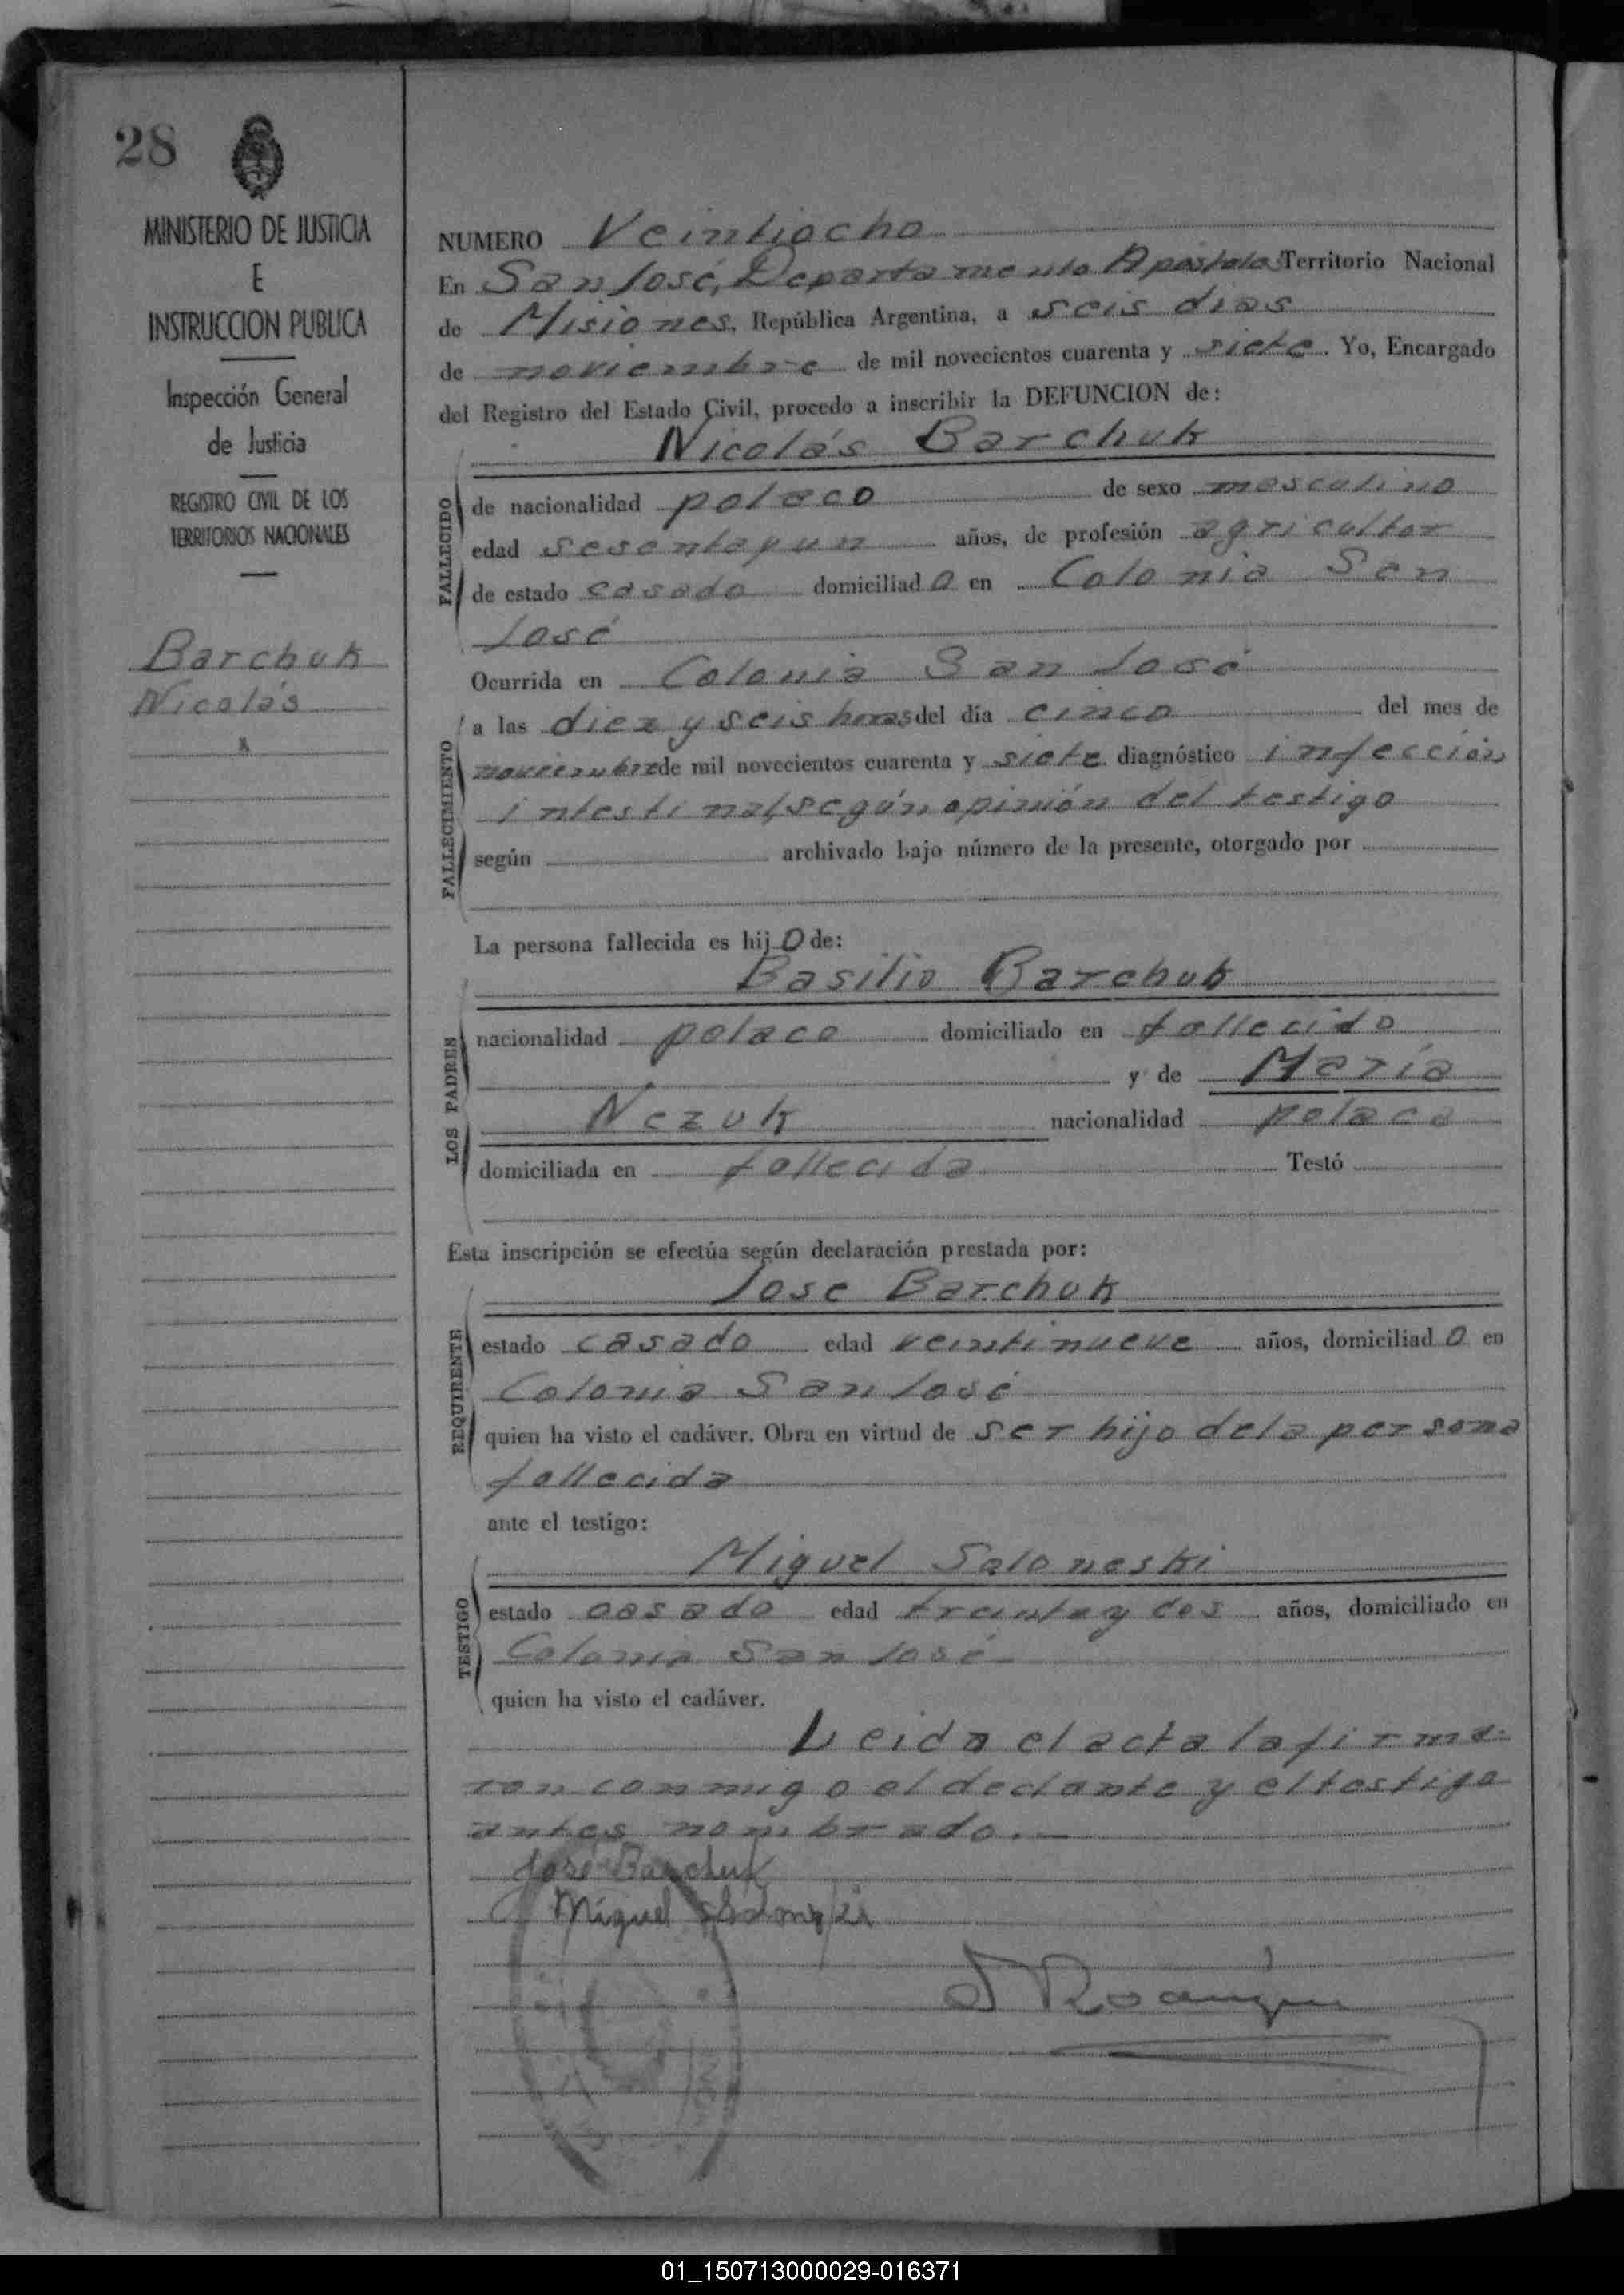 28
MINISTERIO DE JUSTICIA
E
INSTRUCCION PUBLICA
Inspección General
de Justicia
REGISTRO CIVIL DE LOS
TERRITORIOS NACIONALES
Barchuk
Nicolás
x
NUMERO Veintiocho
En San José, Departamento Apóstoles Territorio Nacional
de Misiones, República Argentina, a seis dias
de noviembre de mil novecientos cuarenta y siete. Yo, Encargado
del Registro del Estado Civil, procedo a inscribir la DEFUNCION de:
Nicolás Barchuk
FALLECIDO
de nacionalidad polaco de sexo masculino
edad sesentayun años, de profesión agricultor
de estado casado domiciliad o en Colonia San
José
Ocurrida en Colonia San José
FALLECIMIENTO
a las diez y seis horas del día cinco del mes de
noviembre de mil novecientos cuarenta y siete diagnóstico infección
intestinal, según opinión del testigo
según archivado bajo número de la presente, otorgado por
La persona fallecida es hij o de:
Basilio Barchuk
LOS PADRES
nacionalidad polaco domiciliado en fallecido
y de María
Nezuk nacionalidad polaca
domiciliada en fallecida Testó
Esta inscripción se efectúa según declaración prestada por:
Jose Barchuk
REQUIRENTE
estado casado edad veintinueve años, domiciliad o en
Colonia San José
quien ha visto el cadáver. Obra en virtud de ser hijo de la persona
fallecida
ante el testigo:
Miguel Saloneski
TESTIGO
estado casado edad treinta y dos años, domiciliado en
Colonia San José
quien ha visto el cadáver.
Leida el acta la firma-
ron conmigo el declante y el testigo
antes nombrado.-
José Barchuk
Miguel
01_150713000029-016371